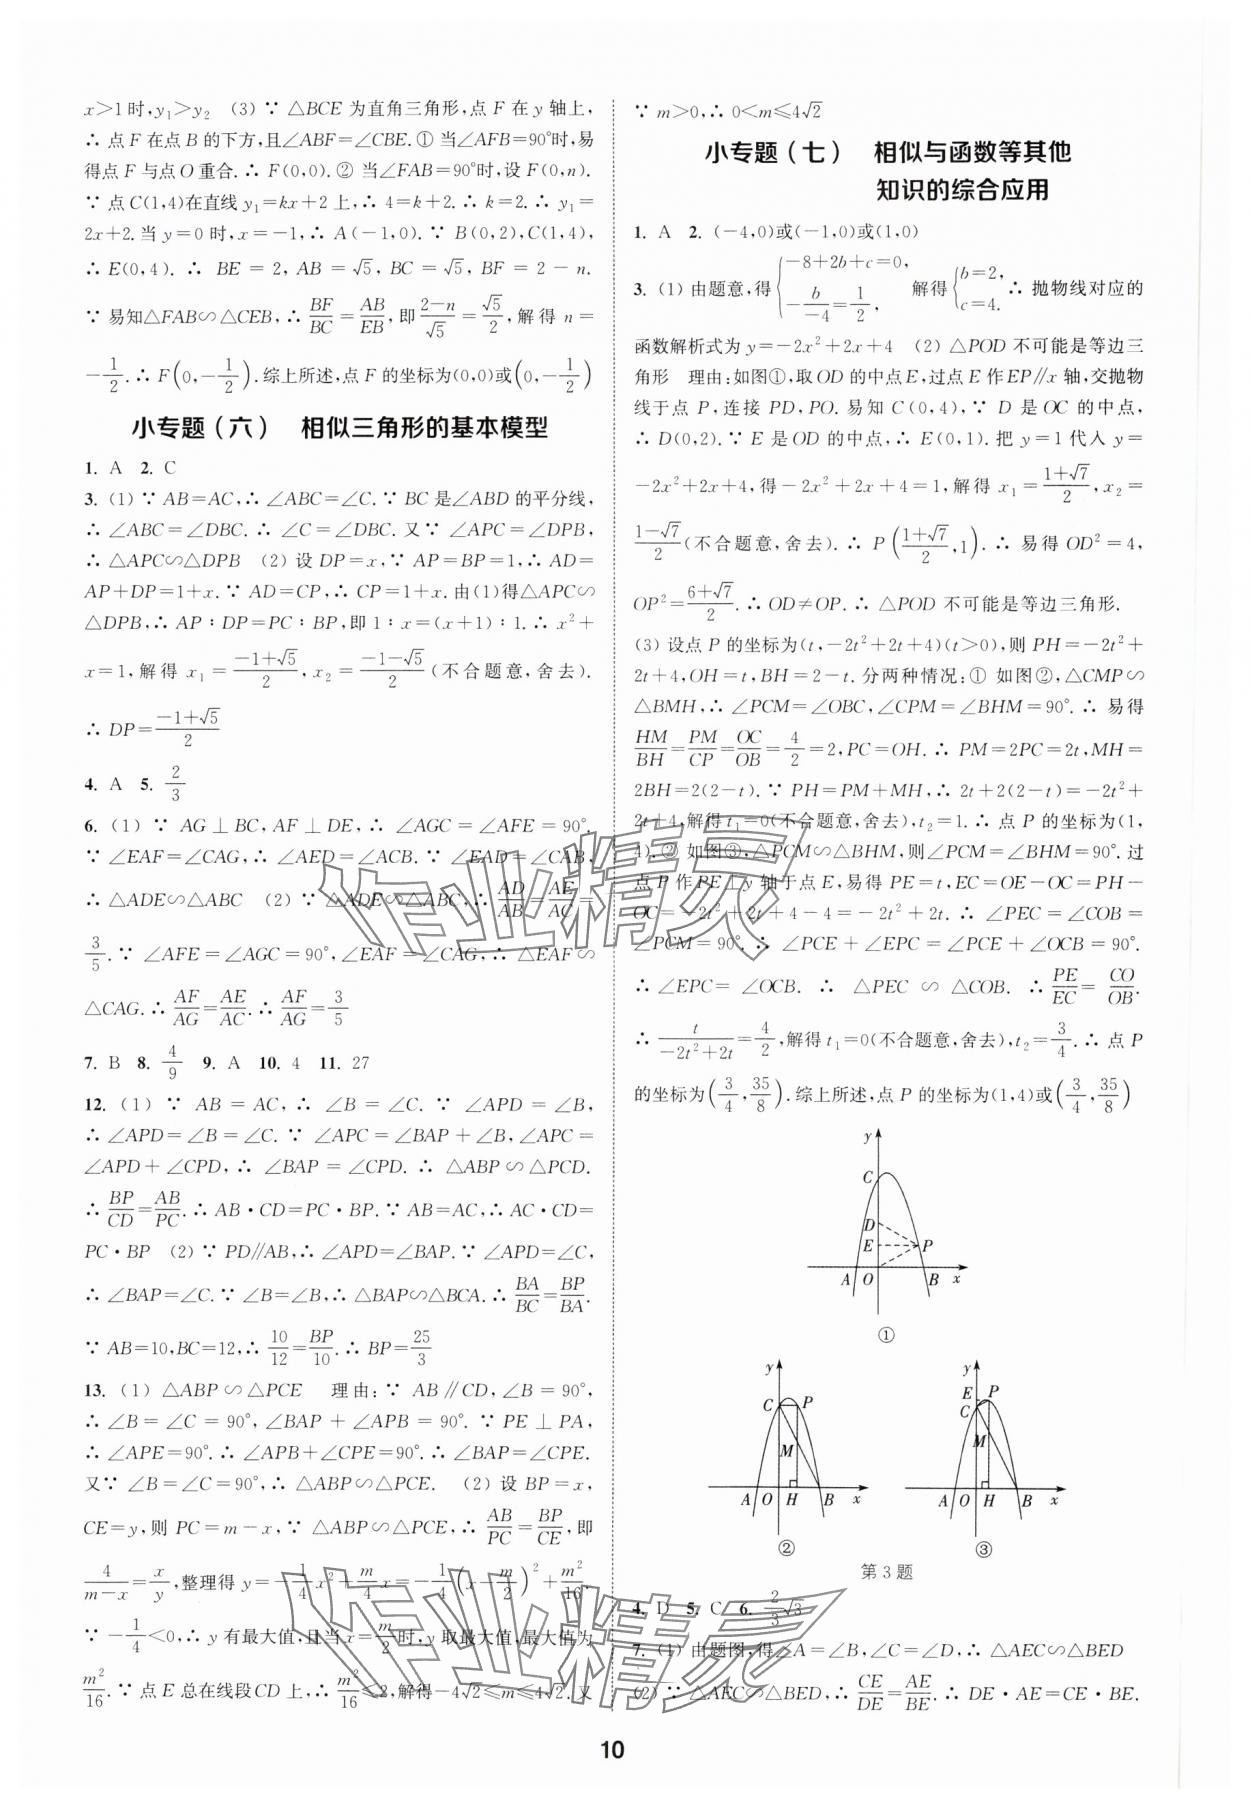 x>1时,y₁>y₂ (3) ∵ △BCE 为直角三角形,点 F 在 y 轴上,
∴ 点 F 在点 B 的下方,且∠ABF=∠CBE.① 当∠AFB=90°时,易
得点 F 与点 O 重合.∴ F(0,0).② 当∠FAB=90°时,设 F(0,n).
∵ 点 C(1,4)在直线 y₁=kx+2 上,∴ 4=k+2.∴ k=2.∴ y₁=
2x+2.当 y=0 时,x=-1,∴ A(-1,0).∵ B(0,2),C(1,4),
∴ E(0,4).∴ BE=2,AB=√5,BC=√5,BF=2-n.
∵ 易知△FAB∽△CEB,∴ BF/BC=AB/EB,即(2-n)/√5=√5/2,解得 n=
-1/2.∴ F(0,-1/2).综上所述,点 F 的坐标为(0,0)或(0,-1/2)
小专题(六) 相似三角形的基本模型
1. A 2. C
3. (1) ∵ AB=AC,∴ ∠ABC=∠C.∵ BC 是∠ABD 的平分线,
∴ ∠ABC=∠DBC.∴ ∠C=∠DBC.又∵ ∠APC=∠DPB,
∴ △APC∽△DPB (2) 设 DP=x,∵ AP=BP=1,∴ AD=
AP+DP=1+x.∵ AD=CP,∴ CP=1+x.由(1)得△APC∽
△DPB,∴ AP∶DP=PC∶BP,即 1∶x=(x+1)∶1.∴ x²+
x=1,解得 x₁=(-1+√5)/2,x₂=(-1-√5)/2(不合题意,舍去).
∴ DP=(-1+√5)/2
4. A 5. 2/3
6. (1) ∵ AG⊥BC,AF⊥DE,∴ ∠AGC=∠AFE=90°.
∵ ∠EAF=∠CAG,∴ ∠AED=∠ACB.∵ ∠EAD=∠CAB,
∴ △ADE∽△ABC (2) ∵ △ADE∽△ABC,∴ AD/AB=AE/AC=
3/5.∵ ∠AFE=∠AGC=90°,∠EAF=∠CAG,∴ △EAF∽
△CAG.∴ AF/AG=AE/AC.∴ AF/AG=3/5
7. B 8. 4/9 9. A 10. 4 11. 27
12. (1) ∵ AB=AC,∴ ∠B=∠C.∵ ∠APD=∠B,
∴ ∠APD=∠B=∠C.∵ ∠APC=∠BAP+∠B,∠APC=
∠APD+∠CPD,∴ ∠BAP=∠CPD.∴ △ABP∽△PCD.
∴ BP/CD=AB/PC.∴ AB·CD=PC·BP.∵ AB=AC,∴ AC·CD=
PC·BP (2) ∵ PD∥AB,∴ ∠APD=∠BAP.∵ ∠APD=∠C,
∴ ∠BAP=∠C.∵ ∠B=∠B,∴ △BAP∽△BCA.∴ BA/BC=BP/BA.
∵ AB=10,BC=12,∴ 10/12=BP/10.∴ BP=25/3
13. (1) △ABP∽△PCE 理由:∵ AB∥CD,∠B=90°,
∴ ∠B=∠C=90°,∠BAP+∠APB=90°.∵ PE⊥PA,
∴ ∠APE=90°.∴ ∠APB+∠CPE=90°.∴ ∠BAP=∠CPE.
又∵ ∠B=∠C=90°,∴ △ABP∽△PCE. (2) 设 BP=x,
CE=y,则 PC=m-x,∵ △ABP∽△PCE,∴ AB/PC=BP/CE,即
4/(m-x)=x/y,整理得 y=-1/4x²+m/4x=-1/4(x-m/2)²+m²/16.
∵ -1/4<0,∴ y 有最大值,且当 x=m/2时,y 取最大值,最大值为
m²/16.∵ 点 E 总在线段 CD 上,∴ m²/16≤2,解得-4√2≤m≤4√2.又
∵ m>0,∴ 0<m≤4√2
小专题(七) 相似与函数等其他
知识的综合应用
1. A 2. (-4,0)或(-1,0)或(1,0)
3. (1) 由题意,得{-8+2b+c=0, -b/-4=1/2, 解得{b=2, c=4. ∴ 抛物线对应的
函数解析式为 y=-2x²+2x+4 (2) △POD 不可能是等边三
角形 理由:如图①,取 OD 的中点 E,过点 E 作 EP∥x 轴,交抛物
线于点 P,连接 PD,PO.易知 C(0,4),∵ D 是 OC 的中点,
∴ D(0,2).∵ E 是 OD 的中点,∴ E(0,1).把 y=1 代入 y=
-2x²+2x+4,得-2x²+2x+4=1,解得 x₁=(1+√7)/2,x₂=
(1-√7)/2(不合题意,舍去).∴ P((1+√7)/2,1).∴ 易得 OD²=4,
OP²=(6+√7)/2.∴ OD≠OP.∴ △POD 不可能是等边三角形.
(3) 设点 P 的坐标为(t,-2t²+2t+4)(t>0),则 PH=-2t²+
2t+4,OH=t,BH=2-t.分两种情况:① 如图②,△CMP∽
△BMH,∴ ∠PCM=∠OBC,∠CPM=∠BHM=90°.∴ 易得
HM/BH=PM/CP=OC/OB=4/2=2,PC=OH.∴ PM=2PC=2t,MH=
2BH=2(2-t).∵ PH=PM+MH,∴ 2t+2(2-t)=-2t²+
2t+4,解得 t₁=0(不合题意,舍去),t₂=1.∴ 点 P 的坐标为(1,
4).② 如图③,△PCM∽△BHM,则∠PCM=∠BHM=90°.过
点 P 作 PE⊥y 轴于点 E,易得 PE=t,EC=OE-OC=PH-
OC=-2t²+2t+4-4=-2t²+2t.∴ ∠PEC=∠COB=
∠PCM=90°.∴ ∠PCE+∠EPC=∠PCE+∠OCB=90°.
∴ ∠EPC=∠OCB.∴ △PEC∽△COB.∴ PE/EC=CO/OB.
∴ t/(-2t²+2t)=4/2,解得 t₁=0(不合题意,舍去),t₂=3/4.∴ 点 P
的坐标为(3/4,35/8).综上所述,点 P 的坐标为(1,4)或(3/4,35/8)
y
C
D
E P
A O B x
①
y
C P
M
A O H B x
②
y
E P
C
M
A O H B x
③
第 3 题
4. D 5. C 6. 2/3√3
7. (1) 由题图,得∠A=∠B,∠C=∠D,∴ △AEC∽△BED
(2) ∵ △AEC∽△BED,∴ CE/DE=AE/BE.∴ DE·AE=CE·BE.
作业精灵
作业精灵
10